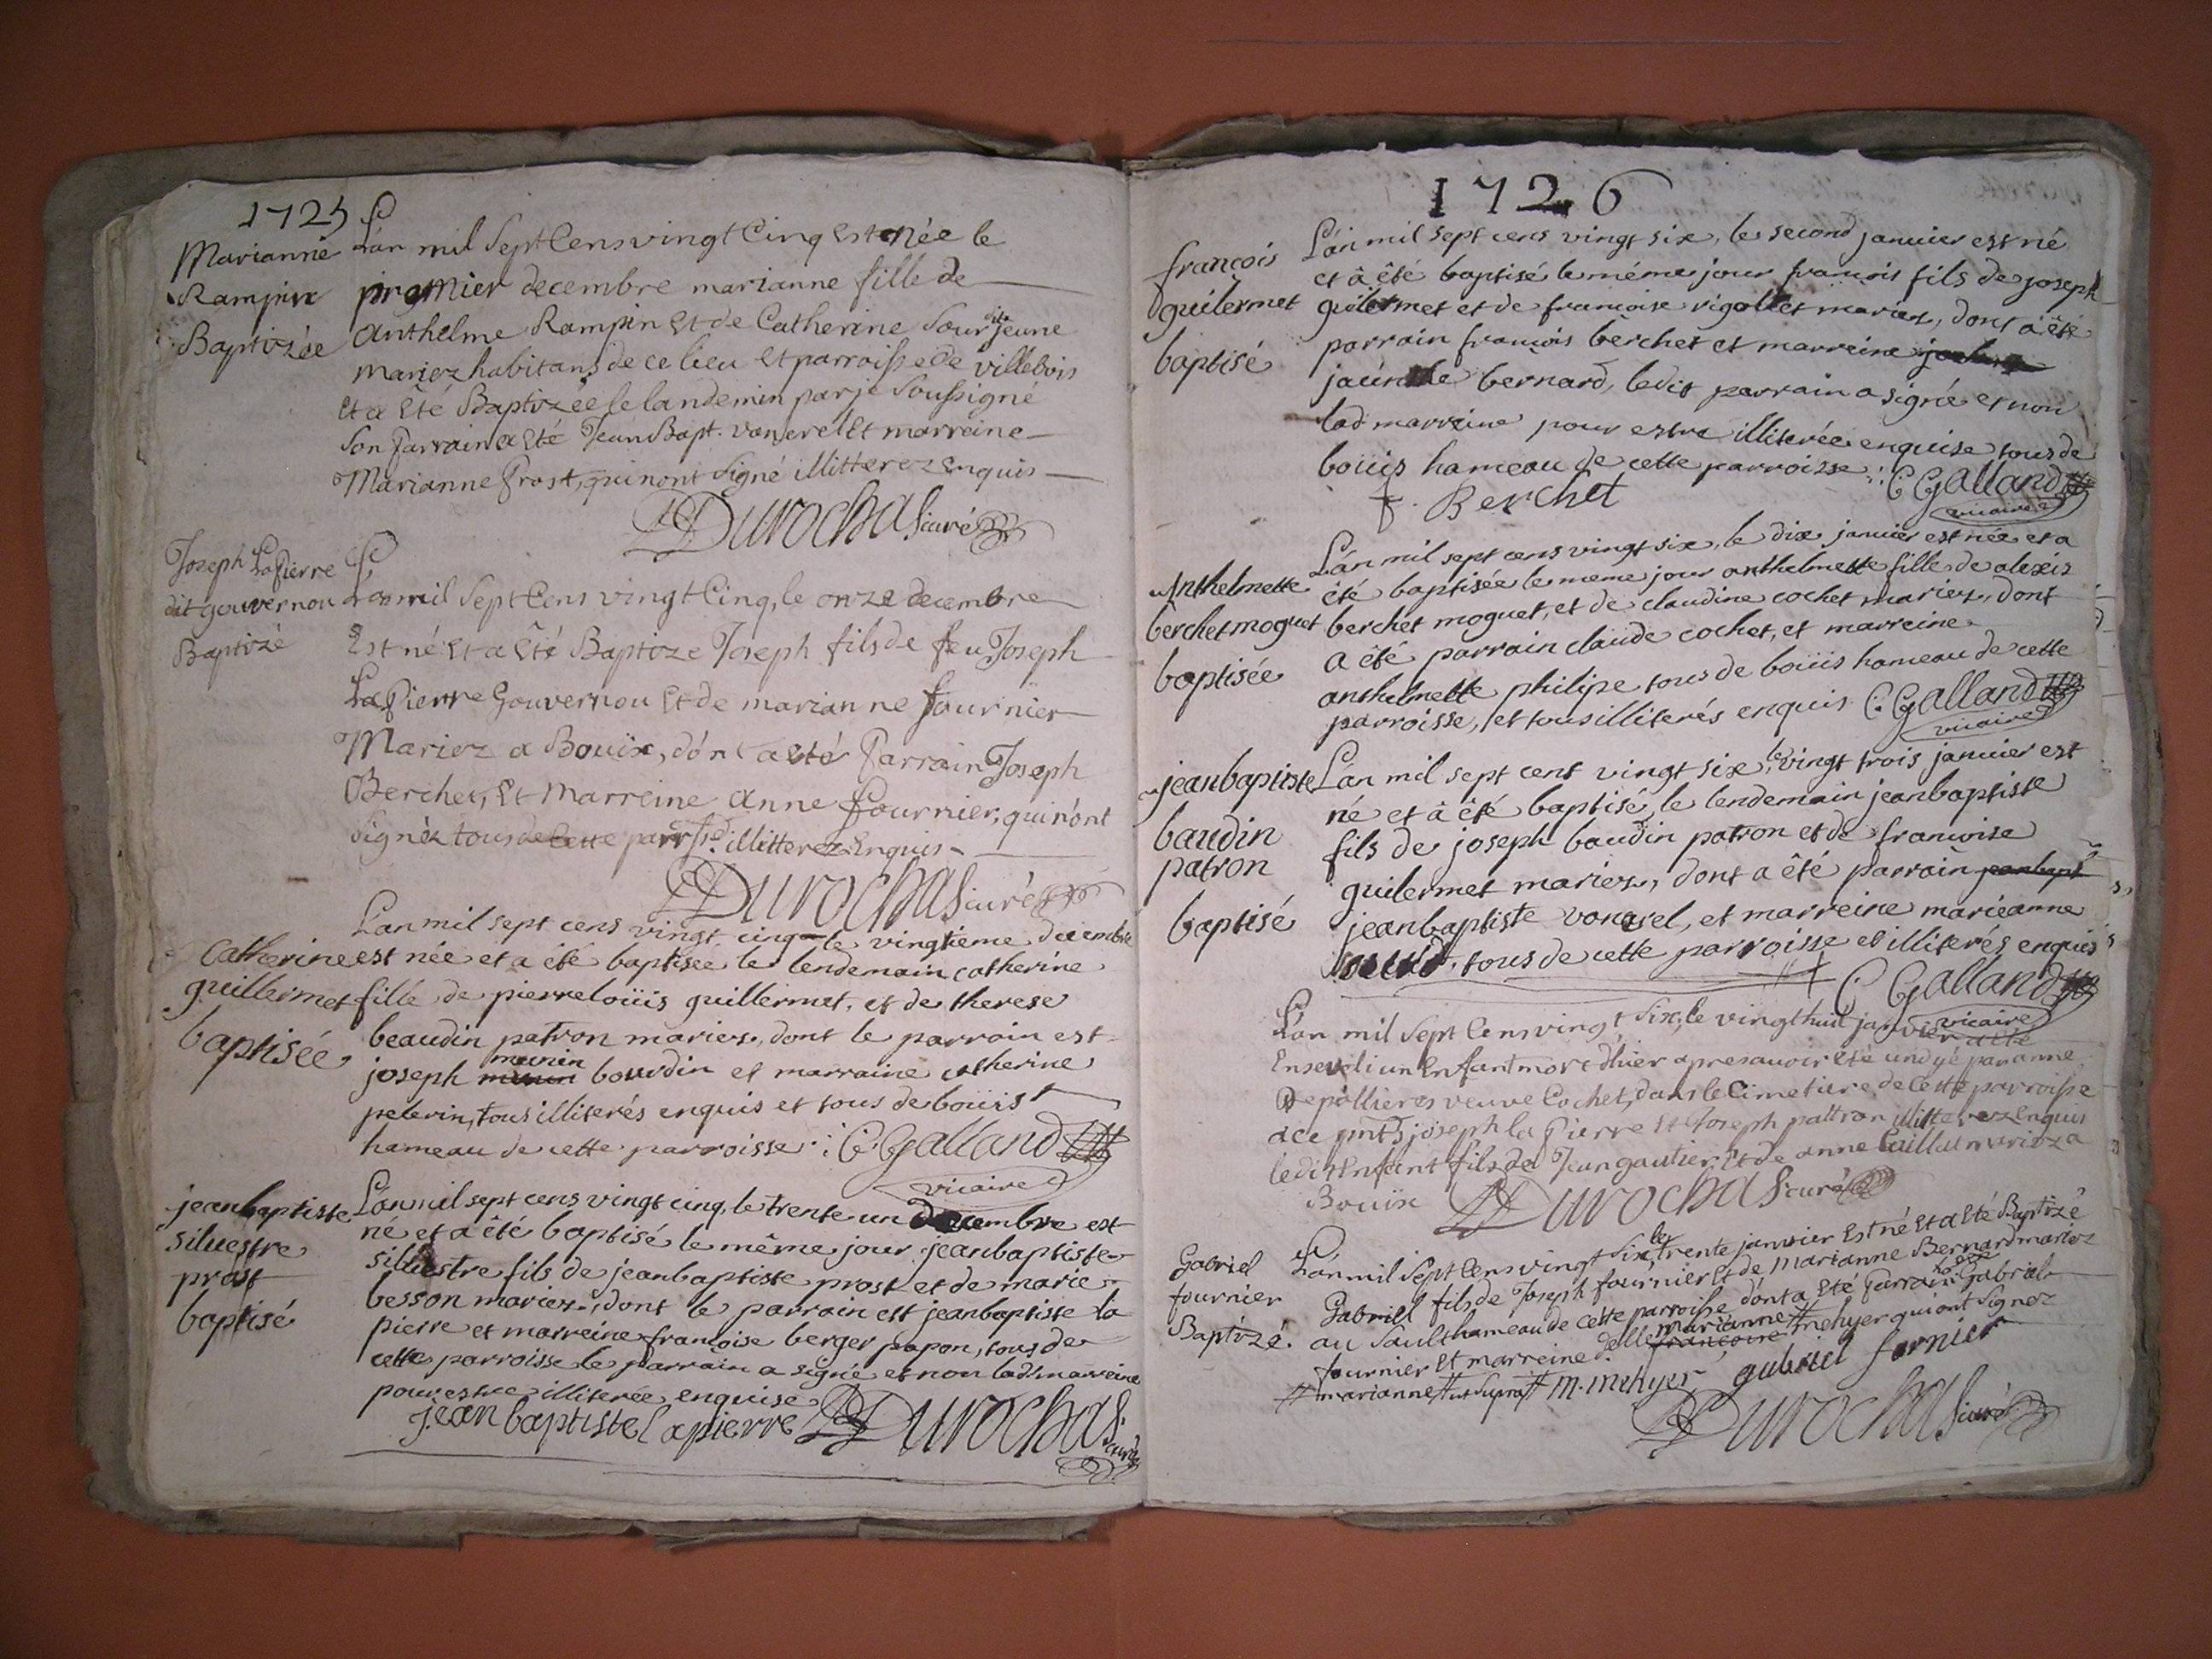 1725
Marianne
Rampin
Baptizée
L'an mil Sept Cens vingt Cinq Est Née le
premier decembre marianne fille de
Anthelme Rampin Et de Catherine Sour dite jeune
mariez habitans de ce lieu Et parroisse de villebois
Et a Eté Baptizée le landemin par je Soussigné
Son Parrain a Eté Jean Bapt. vonerel Et marreine
Marianne Prost, qui n'ont Signé illitterez Enquis
Durochas curé
Joseph LaPierre
dit gouvernou
Baptizé
L'an mil Sept Cens vingt Cinq, le onze decembre
Est né Et a Eté Baptize Joseph fils de feu Joseph
LaPierre Gouvernou Et de marianne fournier
Mariez a Bouïx, dónt a Eté Parrain Joseph
Berchet, Et Marreine Anne fournier, qui n'ónt
Signéz tous de Cette parrsse. illitterez Enquis
Durochas curé
Catherine
guillermet
baptisée
L'an mil sept cens vingt cinq le vingtieme decembre
est née et a été baptisée le lendemain catherine
fille de pierre loüis guillermet, et de therese
beaudin patron mariez, dont le parrain est
joseph munin boudin et marraine catherine
pelerin, tous illiterés enquis et tous de boüis
hameau de cette parroisse : C Galland
vicaire
jeanbaptiste
siluestre
prost
baptisé
L'an mil sept cens vingt cinq, le trente un decembre est
né et a été baptisé le même jour jeanbaptiste
siluestre fils de jeanbaptiste prost et de marie
besson mariez, dont le parrain est jeanbaptiste la
pierre et marreine francoise berger papon, tous de
cette parroisse le parrain a signé et non lad. marreine
pour estre illiterée enquise
jean baptiste lapierre Durochas curé
1726
françois
guilermet
baptisé
L'án mil sept cens vingt six, le second januier est né
et â êté baptisé le méme jour francois fils de joseph
guilermet et de francoise rigollet mariez, dont a êté
parrain francois berchet et marreine
jacinthe bernard, ledit parrain a signé et non
lad marreine pour estre illiterée enquise tous de
boüis hameau de cette parroisse : C Galland
f. Berchet
vicaire
Anthelmette
berchet moguet
baptisée
L'án mil sept cens vingt six, le dix januier est née et a
été baptisée le meme jour anthelmette fille de alexis
berchet moguet, et de claudine cochet mariez, dont
a êté parrain claude cochet, et marreine
anthelmette philipe tous de boüis hameau de cette
parroisse, et tous illiterés enquis C Galland
vicaire
jeanbaptiste
baudin
patron
baptisé
L'án mil sept cent vingt six, le vingt trois januier est
né et â êté baptisé, le lendemain jeanbaptiste
fils de joseph baudin patron et de francoise
guilermet mariez, dont a êté parrain jeanbapt
jeanbaptiste vonarel, et marreine marieanne
tous de cette parroisse et illiterés enquis
C Galland
vicaire
L'an mil Sept Cens vingt Six, le vingt huit janvier a Eté
Enseveli un Enfant mort d'hier apres avoir Eté undyé par anne
Depollieres veuve Cochet, dans le Cimetiere de Cette parroisse
a ce pnts joseph la Pierre Et Joseph pattron illitterez Enquis
ledit Enfant fils de Jean gautier Et de anne Caillat mariez a
Bouïx Durochas curé
Gabriel
fournier
Baptizé.
L'an mil Sept Cens vingt Six, le trente janvier Est né Et a Eté Baptizé
Gabriel fils de Joseph fournier Et de Marianne Bernard mariez
au Sault hameau de Cette parroisse dónt a Eté Parrain Gabriel
fournier Et marreine delle francoise marianne # mehyer qui ont Signez
# marianne # ut Supra # m. mehyer gabriel fornier
Durochas curé